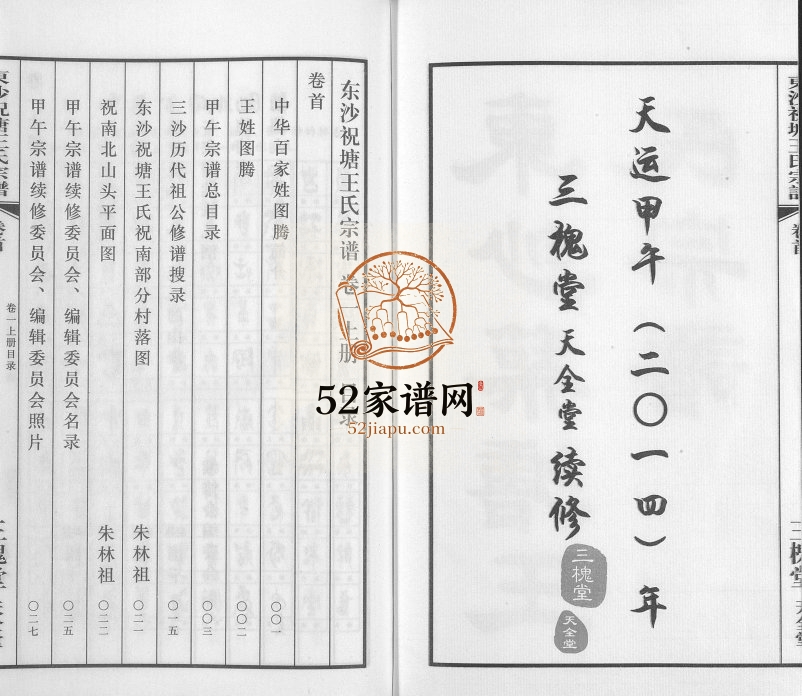 天运甲午（二〇一四）年
三槐堂 天全堂 续修
三槐堂
天全堂
东沙祝塘王氏宗谱 卷一上册 目录
卷首
中华百家姓图腾 〇〇一
王姓图腾 〇〇二
甲午宗谱总目录 〇〇三
三沙历代祖公修谱搜录 〇一五
东沙祝塘王氏祝南部分村落图 朱林祖 〇二一
祝南北山头平面图 朱林祖 〇二二
甲午宗谱续修委员会、编辑委员会名录 〇二五
甲午宗谱续修委员会、编辑委员会照片 〇二七
卷一上册目录
52家谱网
52jiapu.com